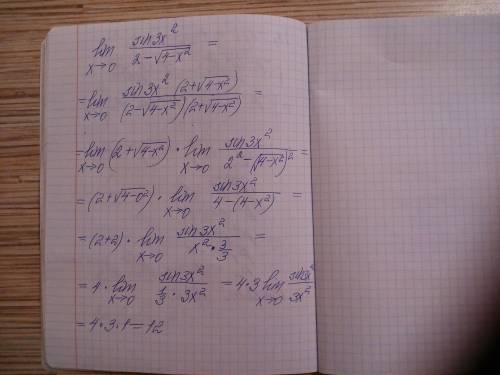 lim x→0 sin3x² / (2-√(4-x²)) =
= lim x→0 sin3x² (2+√(4-x²)) / ((2-√(4-x²))(2+√(4-x²))) =
= lim x→0 (2+√(4-x²)) · lim x→0 sin3x² / (2²-(√(4-x²))²) =
= (2+√(4-0²)) · lim x→0 sin3x² / (4-(4-x²)) =
= (2+2) · lim x→0 sin3x² / (x² · 3/3) =
= 4 · lim x→0 sin3x² / (1/3 · 3x²) = 4·3 lim x→0 sin3x² / 3x²
= 4·3·1 = 12